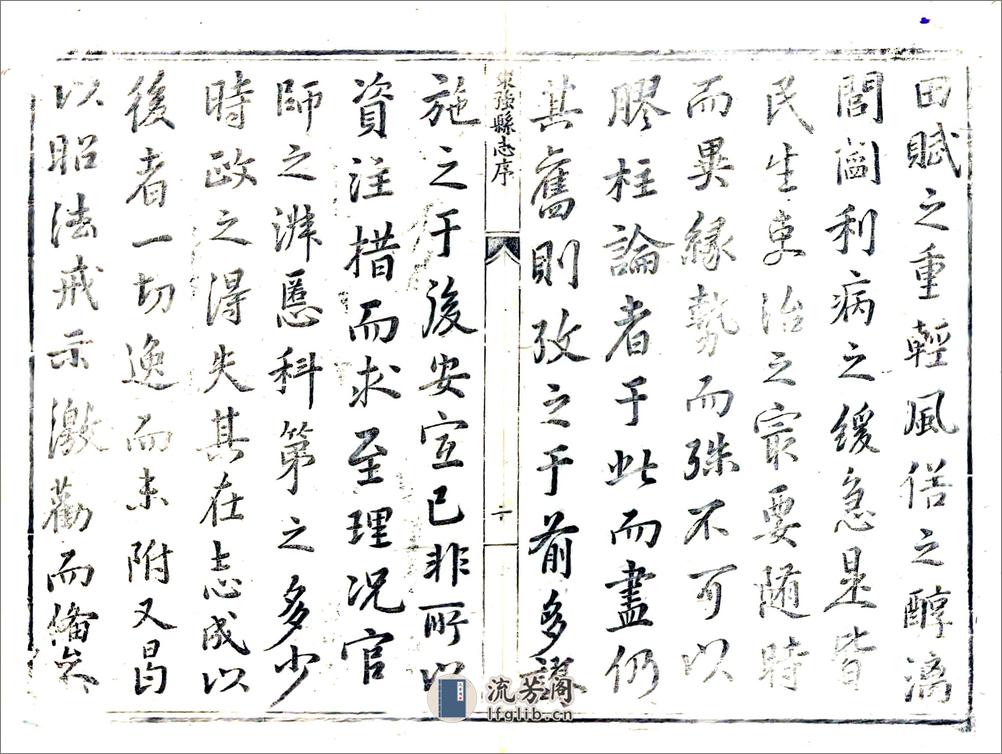 田賦之重輕風俗之醇漓
閭閻利病之緩急是皆
民生吏治之最要随時
而異緣勢而殊不可以
膠柱論者于此而盡仍
其舊則攷之于前多謬
棗强縣志序
十
施之于後安宜已非所以
資注措而求至理况官
師之湃慝科第之多少
時政之得失其在志成以
後者一切逸而未附又曷
以昭法戒示激勸而俻
流芳阁
lfglib.cn